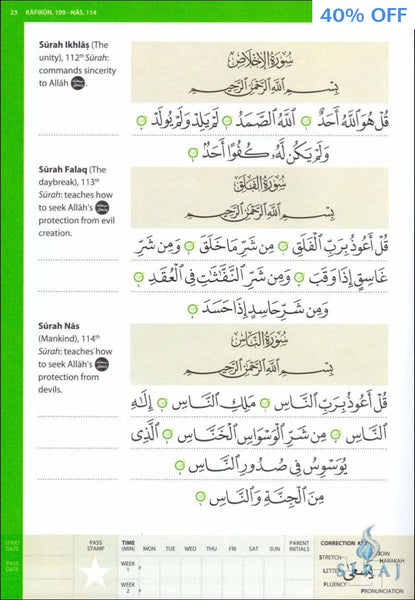 23 KÂFIRÛN, 109 - NÂS, 114
40% OFF
Sûrah Ikhlâṣ (The
unity), 112th Sûrah:
commands sincerity
to Allâh .
سُورَةُ الإِخْلَاصِ
بِسْمِ اللَّهِ الرَّحْمَٰنِ الرَّحِيمِ
قُلْ هُوَ ٱللَّهُ أَحَدٌ ۝ ٱللَّهُ ٱلصَّمَدُ ۝ لَمْ يَلِدْ وَلَمْ يُولَدْ ۝
وَلَمْ يَكُن لَّهُۥ كُفُوًا أَحَدٌۢ ۝
Sûrah Falaq (The
daybreak), 113th
Sûrah: teaches how
to seek Allâh's
protection from evil
creation.
سُورَةُ الفَلَقِ
بِسْمِ اللَّهِ الرَّحْمَٰنِ الرَّحِيمِ
قُلْ أَعُوذُ بِرَبِّ ٱلْفَلَقِ ۝ مِن شَرِّ مَا خَلَقَ ۝ وَمِن شَرِّ
غَاسِقٍ إِذَا وَقَبَ ۝ وَمِن شَرِّ ٱلنَّفَّٰثَٰتِ فِى ٱلْعُقَدِ ۝
وَمِن شَرِّ حَاسِدٍ إِذَا حَسَدَ ۝
Sûrah Nâs
(Mankind), 114th
Sûrah: teaches how
to seek Allâh's
protection from
devils.
سُورَةُ النَّاسِ
بِسْمِ اللَّهِ الرَّحْمَٰنِ الرَّحِيمِ
قُلْ أَعُوذُ بِرَبِّ ٱلنَّاسِ ۝ مَلِكِ ٱلنَّاسِ ۝ إِلَٰهِ
ٱلنَّاسِ ۝ مِن شَرِّ ٱلْوَسْوَاسِ ٱلْخَنَّاسِ ۝ ٱلَّذِى
يُوَسْوِسُ فِى صُدُورِ ٱلنَّاسِ ۝
مِنَ ٱلْجِنَّةِ وَٱلنَّاسِ ۝
START DATE
PASS DATE
PASS STAMP
TIME (MIN) MON TUE WED THU FRI SAT SUN PARENT INITIALS
WEEK 1
WEEK 2
CORRECTION KEY
STRETCH
JOIN
HARAKAH
LETTER
يَسْعَىٰ
PRONUNCIATION
SIRAJ